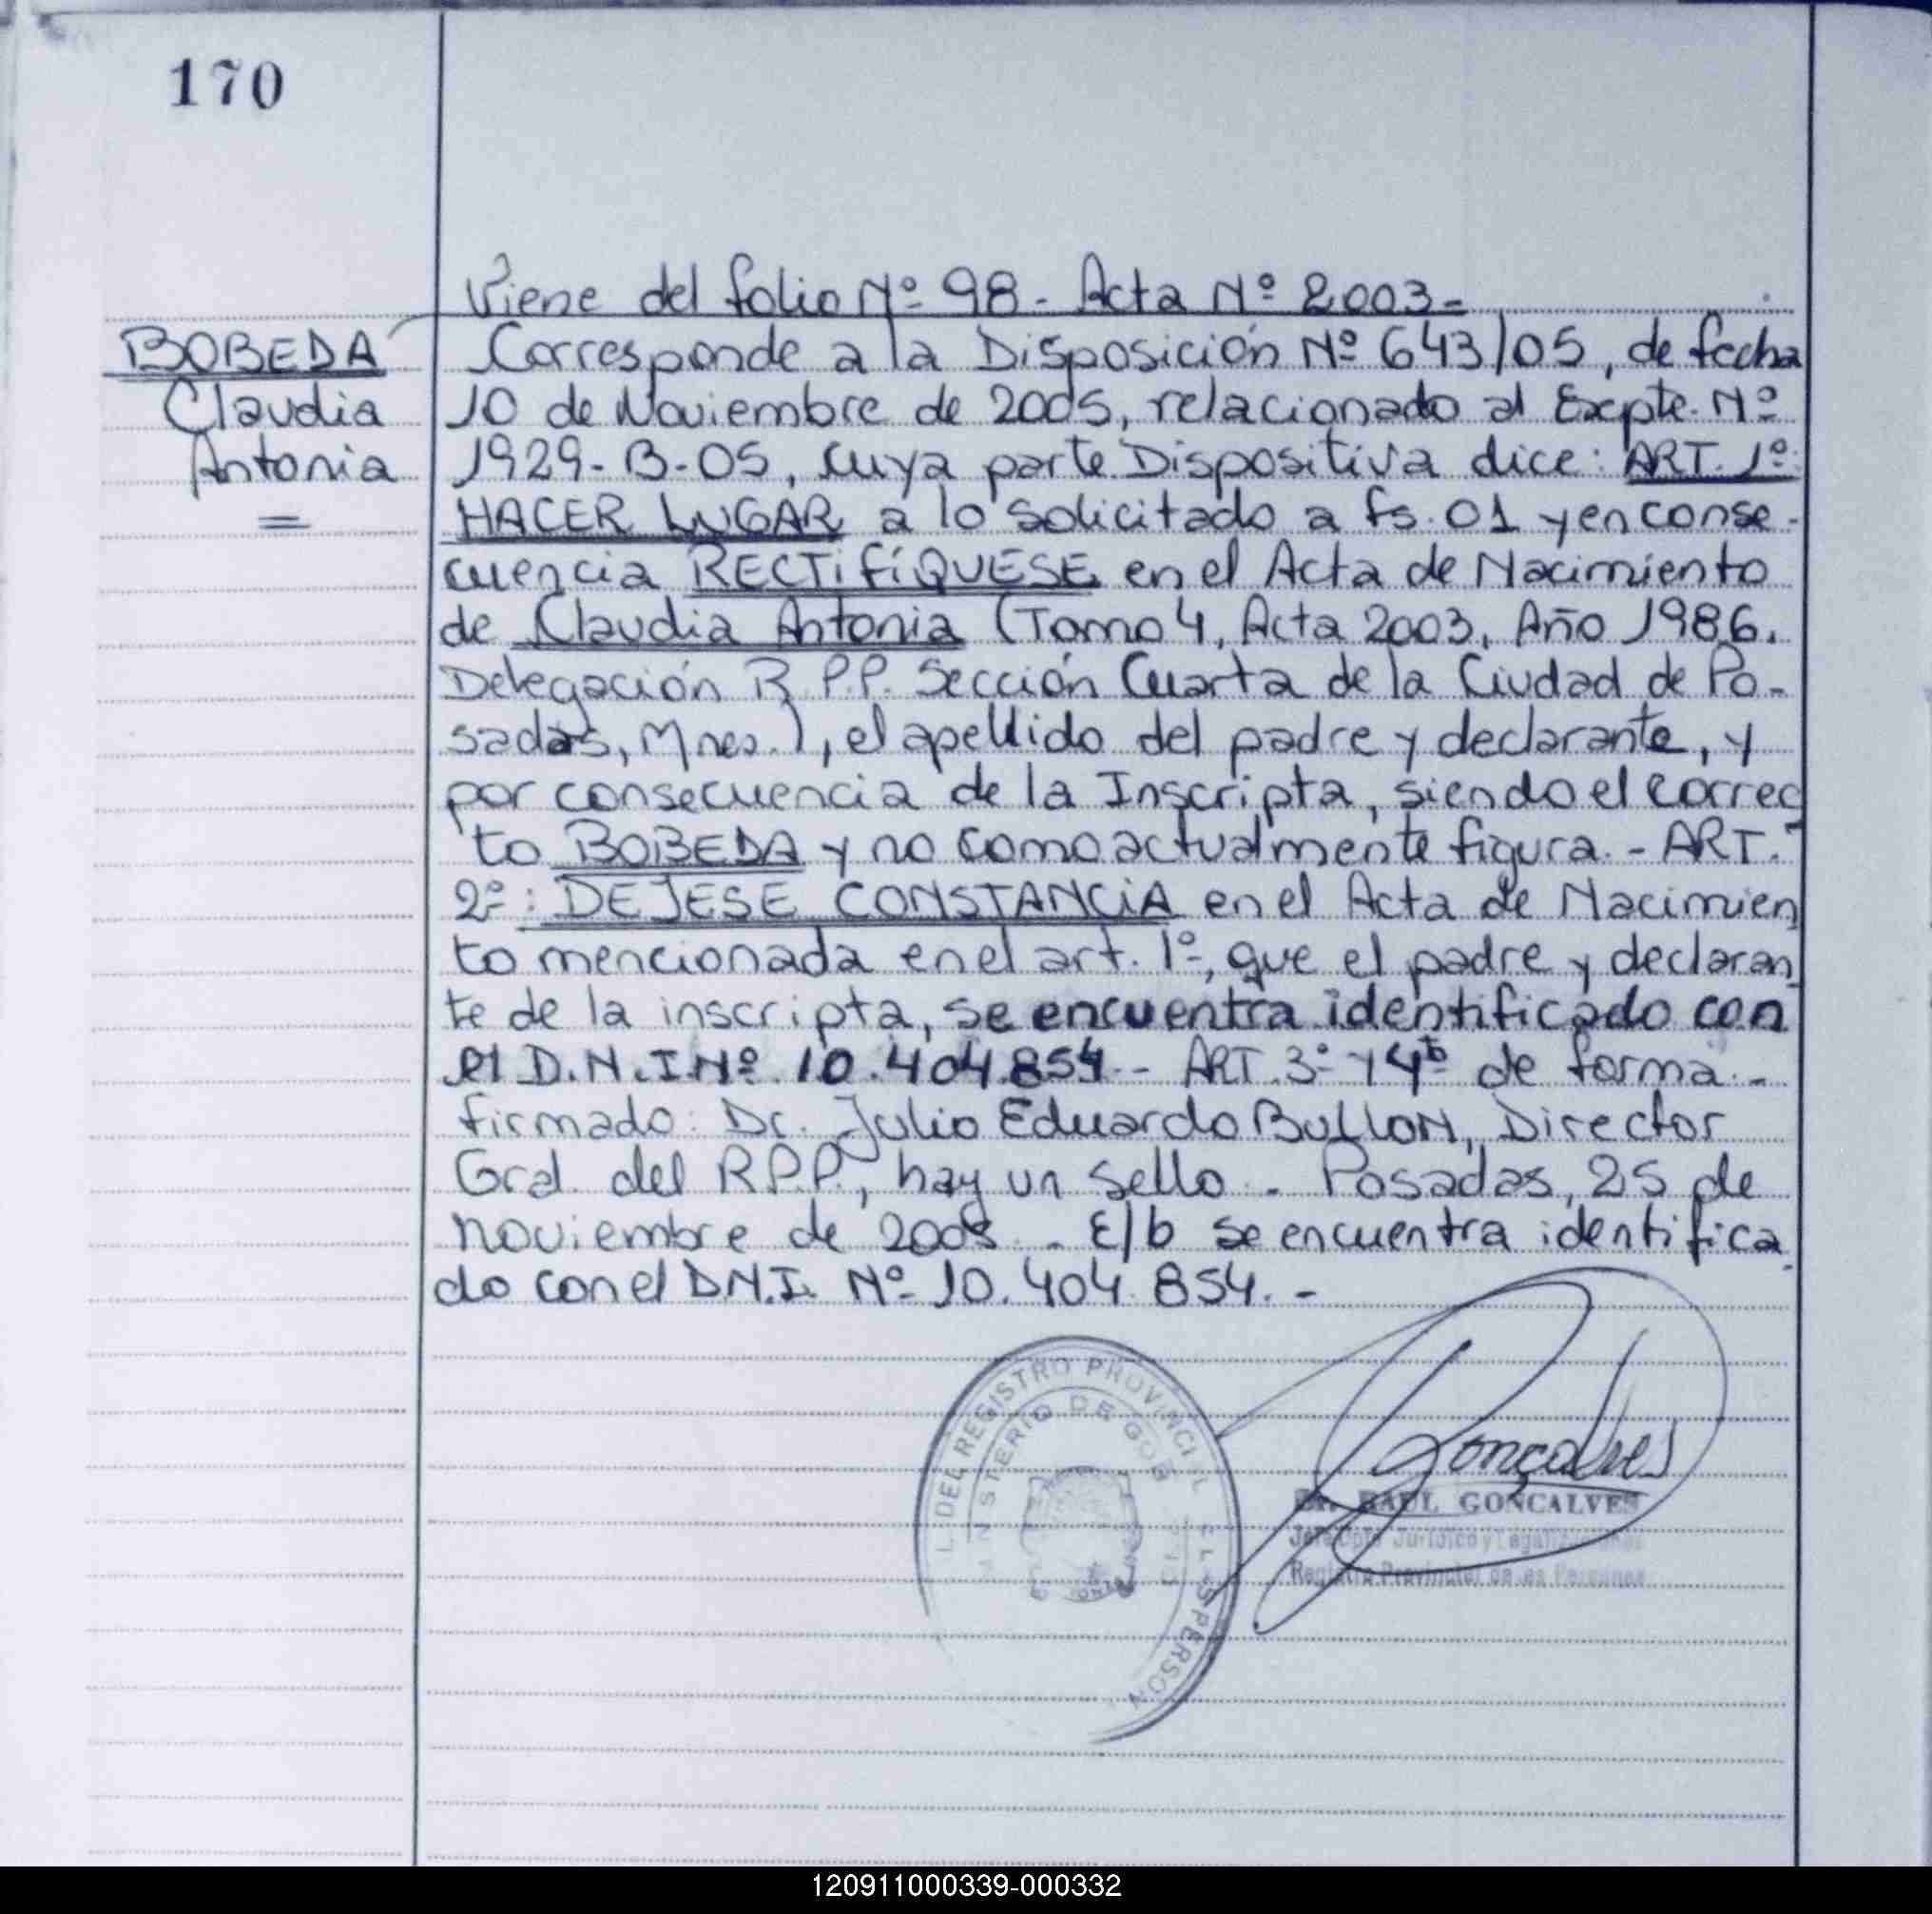 170
Viene del folio Nº 98 - Acta Nº 2003 -
BOBEDA
Claudia
Antonia
Corresponde a la Disposición Nº 643/05, de fecha
10 de Noviembre de 2005, relacionado al Expte. Nº
1929-B-05, cuya parte Dispositiva dice: ART. 1º:
HACER LUGAR a lo solicitado a fs. 01 y en conse-
cuencia RECTIFÍQUESE en el Acta de Nacimiento
de Claudia Antonia (Tomo 4, Acta 2003, Año 1986.
Delegación R.P.P. Sección Cuarta de la Ciudad de Po-
sadas, Mnes.), el apellido del padre y declarante, y
por consecuencia de la Inscripta, siendo el correc
to BOBEDA y no como actualmente figura. - ART.-
2º: DEJESE CONSTANCIA en el Acta de Nacimien
to mencionada en el art. 1º, que el padre y declaran
te de la inscripta, se encuentra identificado con
el D.N.I. Nº 10.404.854 - ART. 3º y 4º de forma. -
firmado: Dr. Julio Eduardo BULLON, Director
Gral. del R.P.P., hay un sello. - Posadas, 25 de
noviembre de 2005. - E/b se encuentra identifica
do con el D.N.I. Nº 10.404.854. -
L. DEL REGISTRO PROVINCIAL
MINISTERIO DE GOB
Gonçalves
Dr. RAUL GONCALVES
Jefe Dpto Jurídico y Legalizaciones
Registro Provincial de las Personas
120911000339-000332